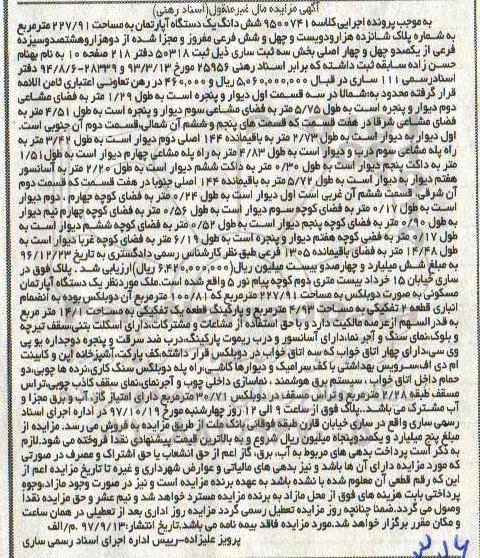 آگهی مزایده مال غیرمنقول(اسناد رهنی)
به موجب پرونده اجرایی کلاسه ۹۵۰۰۷۴۱ شش دانگ یک دستگاه آپارتمان به مساحت ۲۲۷/۹۱ مترمربع
به شماره پلاک شانزده هزارودویست و چهل و شش فرعی مفروز و مجزا شده از دوهزاروهشتصدوسیزده
فرعی از یکصدو چهل و چهار اصلی بخش سه ثبت ساری ذیل ثبت ۵۰۳۱۸ دفتر ۲۱۸ صفحه ۱۰ به نام بهنام
حسن زاده سابقه ثبت داشته که برابر اسناد رهنی ۲۵۹۵۶ -۹۳/۳/۱۳ و ۲۸۳۳۹-۹۴/۸/۶ دفتر
اسنادرسمی ۱۱۱ ساری در قبال ۵,۰۶۰,۰۰۰,۰۰۰ ریال و ۴۶۰,۰۰۰ در رهن تعاونی اعتباری ثامن الائمه
قرار گرفته محدود به:شمالا در سه قسمت اول دیوار و پنجره است به طول ۱/۲۹ متر به فضای مشاعی
دوم دیوار و پنجره است به طول ۵/۷۵ متر به فضای مشاعی سوم دیوار و پنجره است به طول ۴/۵۱ متر به
فضای مشاعی شرقا در هفت قسمت که قسمت های پنجم و ششم آن شمالی،قسمت دوم آن جنوبی است.
اول دیوار به دیوار است به طول ۲/۷۳ متر به باقیمانده ۱۴۴ اصلی دوم دیوار است به طول ۳/۴۲ متر به
راه پله مشاعی سوم درب و دیوار است به طول ۴/۸۳ متر به راه پله مشاعی چهارم دیوار است به طول ۱/۵۱
متر به داکت پنجم دیوار است به طول ۰/۳۰ متر به داکت ششم دیوار است به طول ۲/۲۰ متر به آسانسور
هفتم دیوار به دیوار است به طول ۵/۷۲ متر به باقیمانده ۱۴۴ اصلی جنوبا در هفت قسمت که قسمت دوم
آن شرقی، قسمت ششم آن غربی است اول دیوار است به طول ۰/۲۴ متر به فضای کوچه چهارم ، دوم دیوار
است به طول ۰/۱۷ متر به فضای کوچه سوم دیوار است به طول ۰/۵۶ متر به فضای کوچه چهارم نیم دیوار
به طول ۰/۹۰ متر به فضای کوچه پنجم دیوار است به طول ۰/۵۲ متر به فضای کوچه ششم دیوار است به
طول ۰/۱۷ متر به فضی کوچه هفتم دیوار و پنجره است به طول ۶/۱۹ متر به فضای کوچه غربا دیوار است به
طول ۱۴/۴۸ متر به فضای باقیمانده ۱۳۰۵ فرعی طبق نظر کارشناس رسمی دادگستری به تاریخ ۹۶/۱۲/۲۳
به مبلغ شش میلیارد و چهارصدو بیست میلیون ریال(۶,۴۲۰,۰۰۰,۰۰۰ ریال)ارزیابی شد . پلاک فوق در
ساری خیابان ۱۵ خرداد بیست متری دوم کوچه پیام نور ۵ واقع شده است.ملک موردنظر یک دستگاه آپارتمان
مسکونی به صورت دوبلکس به مساحت ۲۲۷/۹۱ مترمربع که ۱۰۰/۸۱ مترمربع آن دوبلکس بوده به انضمام
انباری قطعه ۲ تفکیکی به مساحت ۴/۹۳ مترمربع و پارکینگ قطعه یک تفکیکی به مساحت ۱۴/۱ متر مربع
به قدرالسهم ازعرصه مالکیت دارد و با حق استفاده از مشاعات و مشترکات،دارای اسکلت بتنی،سقف تیرچه
و بلوک،نمای سنگ و آجر نما،دارای آسانسور و درب ریموت پارکینگ،درب ضد سرقت و پنجره دوجداره یو پی
وی سی،دارای چهار اتاق خواب که سه اتاق خواب در دوبلکس قرار داشته،کف پارکت،آشپزخانه اپن و کابینت
ام دی اف،سرویس بهداشتی با کف سرامیک و دیوارها کاشی،راه پله دوبلکس سنگ کاری،نرده ها چوبی،دو
حمام داخل اتاق خواب ، سیستم برق هوشمند ، نماسازی داخلی چوب و آجرنمای،نمای سقف کاذب چوبی،تراس
مسقف طبقه ۲/۲۸ مترمربع و تراس مسقف در دوبلکس ۳۰/۷۱ مترمربع دارای امتیاز گاز، آب و برق مجزا و
آب مشترک می باشد..پلاک فوق از ساعت ۹ الی ۱۲ روز چهارشنبه مورخ ۹۷/۱۰/۱۹ در اداره اجرای اسناد
رسمی ساری واقع در ساری خیابان قارن طبقه فوقانی بانک ملت از طریق مزایده به فروش می رسد. مزایده از
مبلغ پنج میلیارد و یکصدوپنجاه میلیون ریال شروع و به بالاترین قیمت پیشنهادی نقدا فروخته می شود.لازم
به ذکر است پرداخت بدهی های مربوط به آب، برق، گاز اعم از حق انشعاب یا حق اشتراک و مصرف در صورتی
که مورد مزایده دارای آن ها باشد و نیز بدهی های مالیاتی و عوارض شهرداری و غیره تا تاریخ مزایده اعم از
این که رقم قطعی آن معلوم شده یا نشده باشد به عهده برنده مزایده است و نیز در صورت وجود مازاد،وجوه
پرداختی بابت هزینه های فوق از محل مازاد به برنده مزایده مسترد خواهد شد و نیم عشر و حق مزایده نقدا
وصول می گردد.ضمنا چنانچه روز مزایده تعطیل رسمی گردد مزایده روز اداری بعد از تعطیلی در همان ساعت
و مکان مقرر برگزار خواهد شد.مورد مزایده فاقد بیمه نامه می باشد.تاریخ انتشار:۹۷/۹/۱۳ .م/الف
پرویز علیزاده-رییس اداره اجرای اسناد رسمی ساری